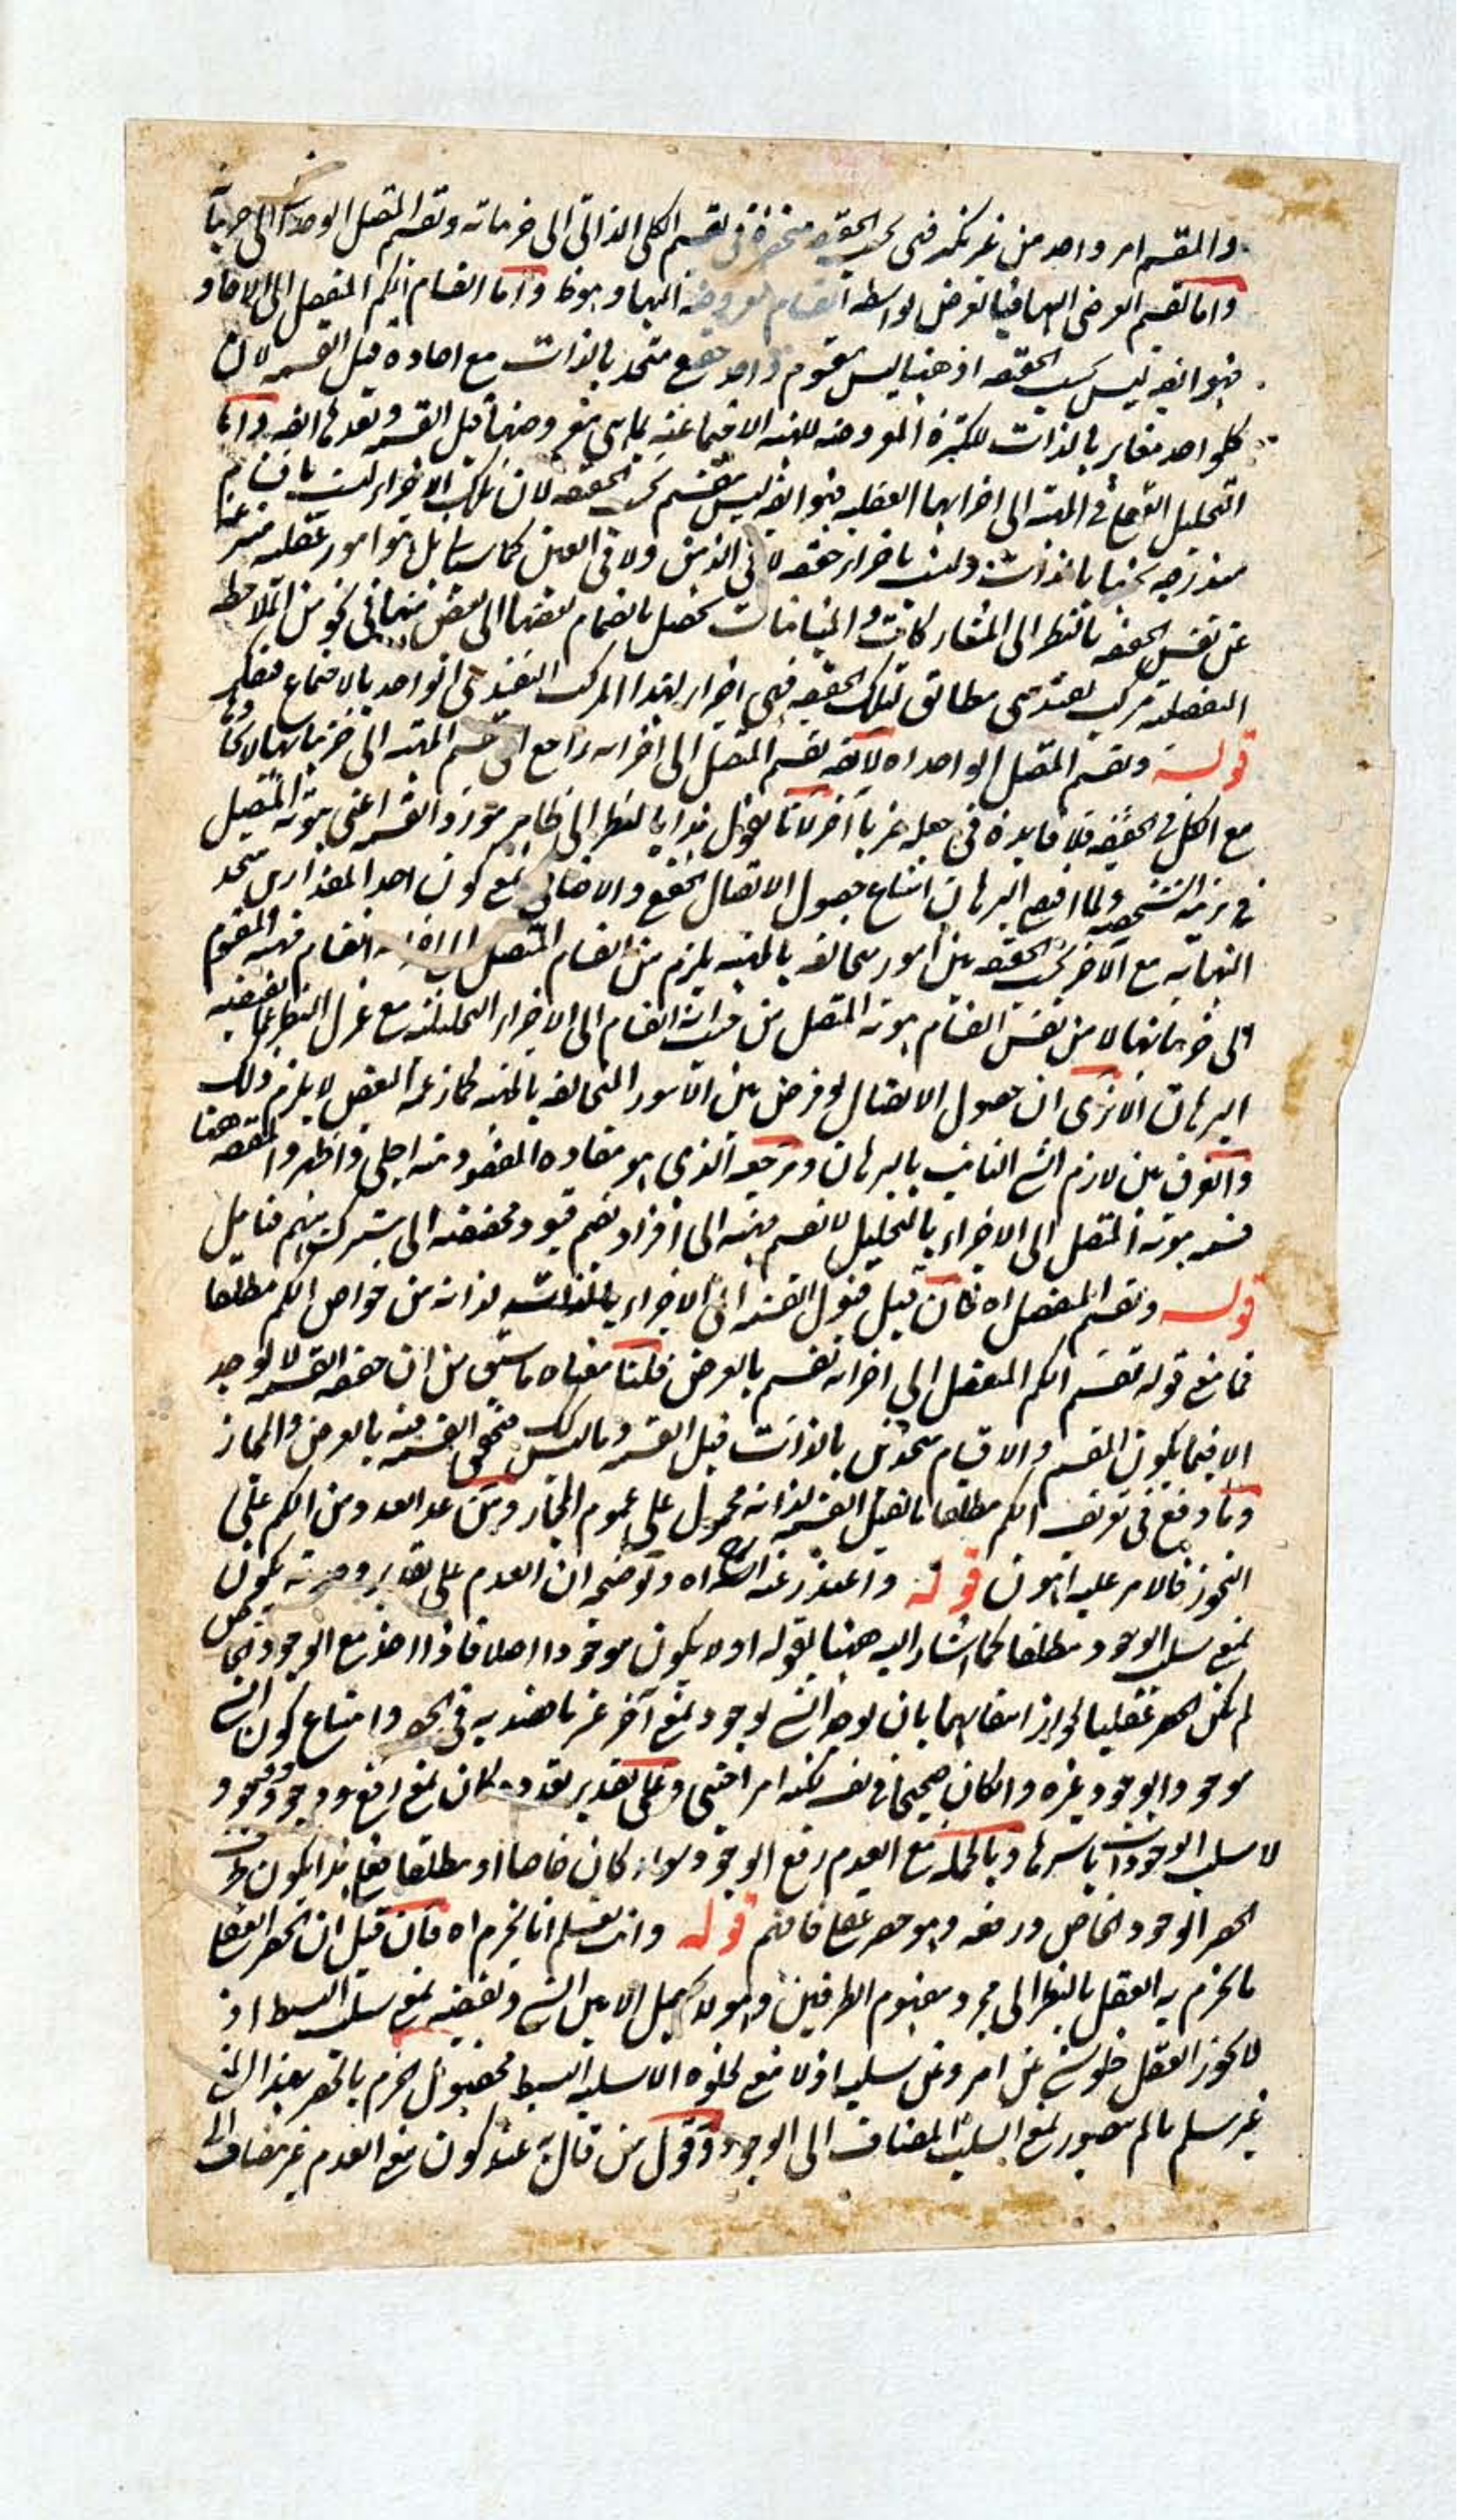 والمقسم امر واحد من غير نكير فهى بحسب الحقيقة منحصرة فى تقسيم الكلى الذاتى الى جزئياته وتقسيم المتصل الواحد الى اجزائه
واما تقسيم العرضى اليها فبالعرض بواسطة انقسام معروضه اليها وهو ظ واما انقسام الكم المنفصل الى الاحاد
فهو ايضه ليس بحسب الحقيقة اذ هنا ليس مقسوم واحد حقيقى متحد بالذات مع احاده قبل القسمة لان
كل واحد مغاير بالذات للكثرة المعروضه للهيئة الاجتماعية بما هى معروضها قبل القسمة وبعدها ايضه واما
التحليل الواقع فى المهية الى اجزائها العقلية فهو ايضه ليس تقسيم بحسب الحقيقة لان تلك الاجزاء ليست باقسام
مندرجة تحتها بالذات وليست باجزاء حقيقة لا فى الذهن ولا فى العين كما سيأتى بل هو امور عقلية منتزعة
عن نفس الحقيقة بالنظر الى المشاركات والمباينات تحصل بانضمام بعضها الى بعض منها فى نحو من الملاحظه
التفصيلية مركب تقييدى مطابق لتلك الحقيقة فهى اجزاء لهذا المركب التقييدى الواحد بالاجتماع فتفكر
قوله وتقسيم المتصل الواحد اه لا يقه تقسيم المتصل الى اجزائه راجع الى تقسيم المهية الى جزئياتها لاتحادها
مع الكل فى الحقيقة فلا فائدة فى جعله ضربا آخر لانا نقول هذا بالنظر الى ظاهر مورد القسمة اعنى هوية المتصل
فى مرتبة الشخصية ولما اقيم البرهان امتناع حصول الاتصال الحقيقى والاضافى بمع كون احد المقدارين متحد
النهاية مع الآخر بحسب الحقيقة بين امور متخالفة بالمهية يلزم من انقسام المتصل الى اجزائه انقسام مهية المقسوم
الى جزئياتها لا من نفس انقسام هوية المتصل من حيث انه انقسام الى الاجزاء التحليلية مع عزل النظر عما يقتضيه
البرهان الا ترى ان حصول الاتصال لو فرض بين الامور المتخالفة بالمهية كما زعمه العقل لا يلزم ذلك
والفرق بين لازم الشئ الثابت بالبرهان ومرجعه الذى هو مفاده المقصود منه اجلى واظهر والمقصه ههنا
قسمة هوية المتصل الى الاجزاء بالتحليل لا تقسيم مهية الى افراد بضم قيود مخصصة الى مشترك مبهم فتأمل
قوله وتقسيم المنفصل اه فان قيل قبول القسمة الى الاجزاء لذاته من خواص الكم مطلقا
فما معنى قوله تقسيم الكم المنفصل الى اجزائه تقسيم بالعرض قلنا معناه ما سبق من ان حقيقة القسمة لا توجد
الا فيما يكون المقسم والاقسام متحدين بالذات قبل القسمة وما ليس كك فتحقق القسمة فيه بالعرض والمجاز
وما وقع فى تعريف الكم مطلقا ما يقبل القسمة لذاته محمول على عموم المجاز ومن عد العدد من الكم على
التجوز فالامر عليه اهون قوله واعتذر عنه الش اه وتوضيحه ان العدم على تقدير وحدته يكون
بمعنى سلب الوجود مطلقا كما اشار اليه ههنا بقوله او لا يكون موجودا اصلا فاذا اخذ مع الوجود الخاص
لم يكن الحصر عقليا لجواز انتفائهما بان يوجد الشئ بوجود بمعنى آخر غير ماخوذ به فى الحصر وامتناع كون الشئ
موجودا بوجود غيره وان كان صحيحا فى نفسه لكنه امر اجنبى وعلى تقدير تعدده كان بمعنى رفع وجود وجود
لا سلب الوجودات باسرها وبالجملة مع العدم رفع الوجود سواء كان خاصا او مطلقا فعلى هذا يكون طرف
الحصر الوجود الخاص ورفعه وهو حصر عقلى فافهم قوله وانت تعلم انا نجزم اه فان قيل ان الحصر العقلى
ما يجزم به العقل بالنظر الى مجرد مفهوم الطرفين وهو لا يحصل الا بين الشئ ونقيضه بمعنى سلب البسيط اذ
لا يجوز العقل خلو شئ عن امر وعن سلبه اذ لا معنى لخلوه الا سلبه البسيط فحصول الجزم بالحصر بهذا المعنى
غير مسلم ما لم يتصور بمعنى السلب المضاف الى الوجود وقول من قال انه عند كون معنى العدم غير مضاف الى